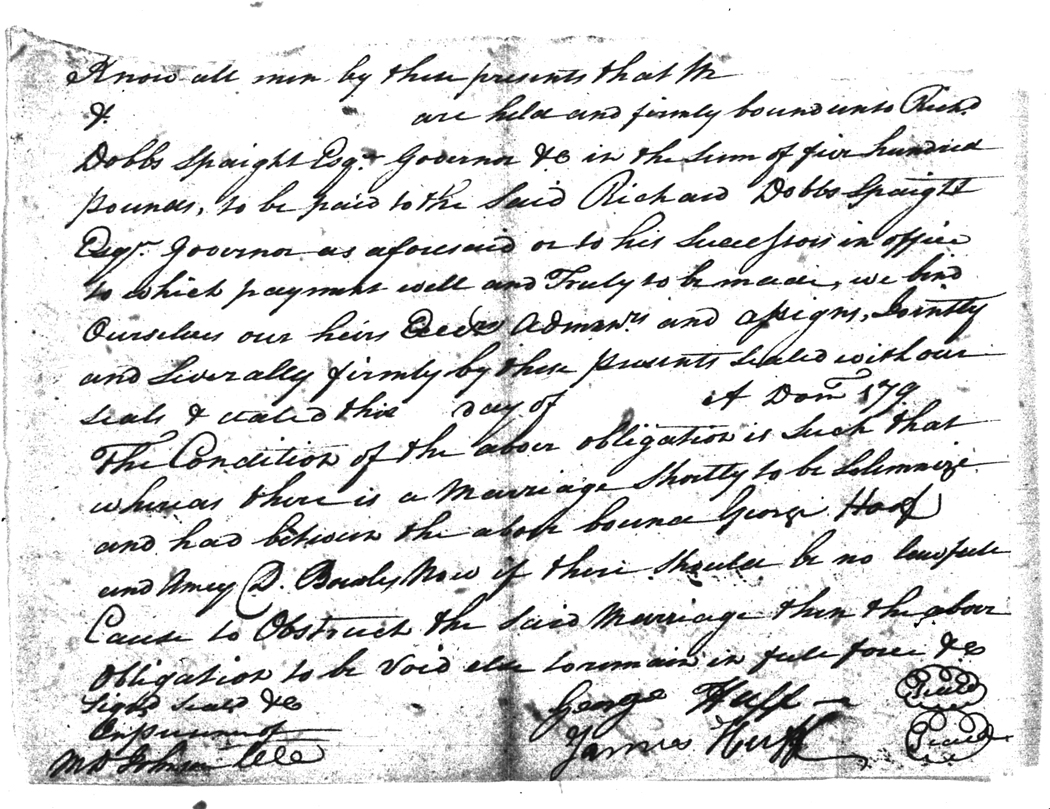 Know all men by these presents that We
&. are held and firmly bound unto Richd.
Dobbs Spaight Esqr. Governor &c in the Sum of five hundred
pounds, to be paid to the Said Richard Dobbs Spaight
Esqr. Governor as aforesaid or to his Successors in office
to which payment well and Truly to be made, we bind
Ourselves our heirs Admanrs and assigns, Jointly
and Severally firmly by these presents Sealed with our
Seals & dated this day of A Dom 179
The Condition of the above obligation is Such that
whereas there is a Marriage Shortly to be Solemnize
and had between the above bound George Hoof
and Amey D. Now if there Should be no lawfull
Cause to Obstruct the Said Marriage then the above
Obligation to be Void else to remain in full force &c
Signd Seald &c
In presence of
George Huff (Seald)
James Huff (Seald)
Johnson